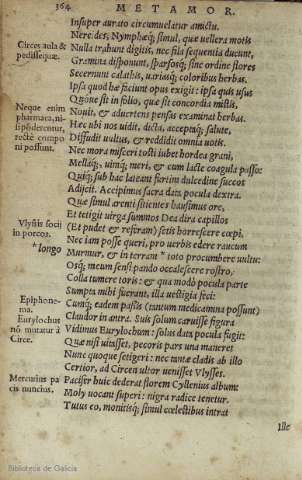 364 METAMOR.
Insuper aurato circumuelatur amictu.
Nereides, Nymphæq; simul, quæ uellera motis
Circes aula &
pedissequæ.
Nulla trahunt digitis, nec fila sequentia ducunt,
Gramina disponunt, sparsosq; sine ordine flores
Secernunt calathis, uariasq; coloribus herbas.
Ipsa quod hæ faciunt opus exigit: ipsa quis usus
Quoue sit in folio, quæ sit concordia mistis,
Neque enim
pharmaca, ni-
si pōderentur,
recte compo
ni possunt.
Nouit, & aduertens pensas examinat herbas.
Hæc ubi nos uidit, dicta, acceptaq; salute,
Diffudit uultus, & reddidit omnia uotis.
Nec mora misceri tosti iubet hordea grani,
Mellaq;, uimq; meri, & cum lacte coagula passo:
Quiq; sub hac lateant furtim dulcedine succos
Adijcit. Accipimus sacra data pocula dextra.
Quæ simul arenti sitientes hausimus ore,
Et tetigit uirga summos Dea dira capillos
Vlyssis socij
in porcos.
(Et pudet & referam) setis horrescere cœpi,
Nec iam posse queri, pro uerbis edere raucum
* longo
Murmur, & in terram * toto procumbere uultu:
Osq; meum sensi pando occalescere rostro,
Colla tumere toris: & qua modò pocula parte
Sumpta mihi fuerant, illa uestigia feci:
Epiphone-
ma.
Eurylochus
nō mutatur à
Circe.
Cumq; eadem passis (tantum medicamina possunt)
Claudor in antra. Suis solum caruisse figura
Vidimus Eurylochum: solus data pocula fugit:
Quæ nisi uitasset, pecoris pars una maneret
Nunc quoque setigeri: nec tantæ cladis ab illo
Certior, ad Circen ultor uenisset Vlysses.
Mercurius pa
cis nuncius.
Pacifer huic dederat florem Cyllenius album:
Moly uocant superi: nigra radice tenetur.
Tutus eo, monitisq; simul cœlestibus intrat
Ille
Biblioteca de Galicia